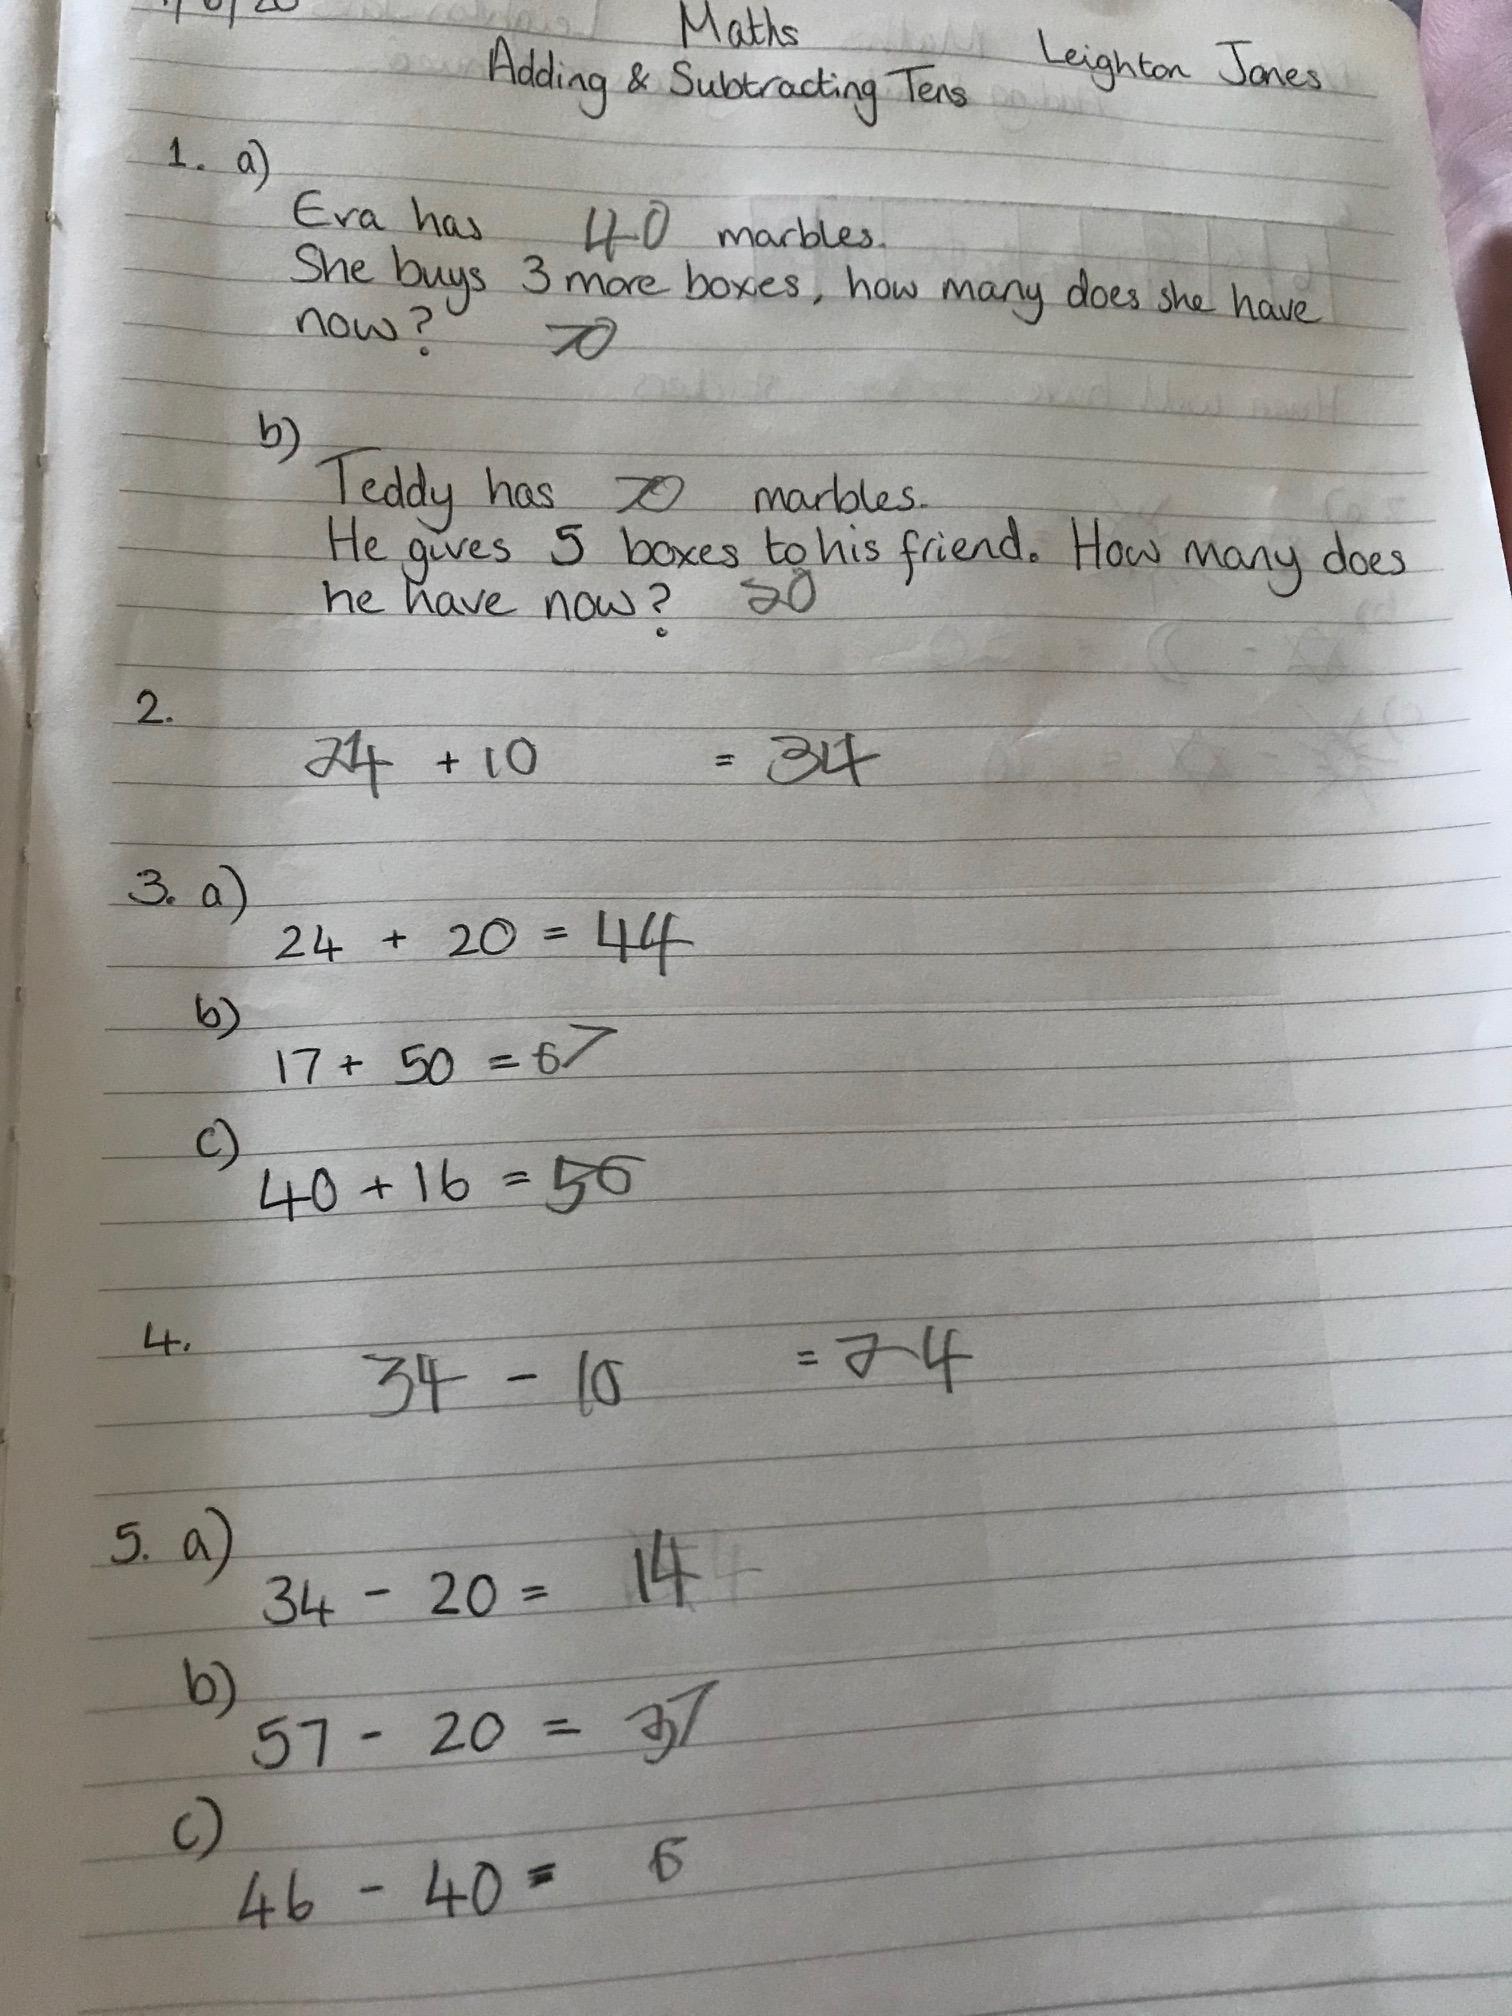 Maths
Leighton Jones
Adding & Subtracting Tens
1. a)
Eva has 40 marbles.
She buys 3 more boxes, how many does she have
now? 70
b)
Teddy has 70 marbles.
He gives 5 boxes to his friend. How many does
he have now? 20
2.
24 + 10 = 34
3. a)
24 + 20 = 44
b)
17 + 50 = 67
c)
40 + 16 = 56
4.
34 - 10 = 24
5. a)
34 - 20 = 14
b)
57 - 20 = 37
c)
46 - 40 = 6